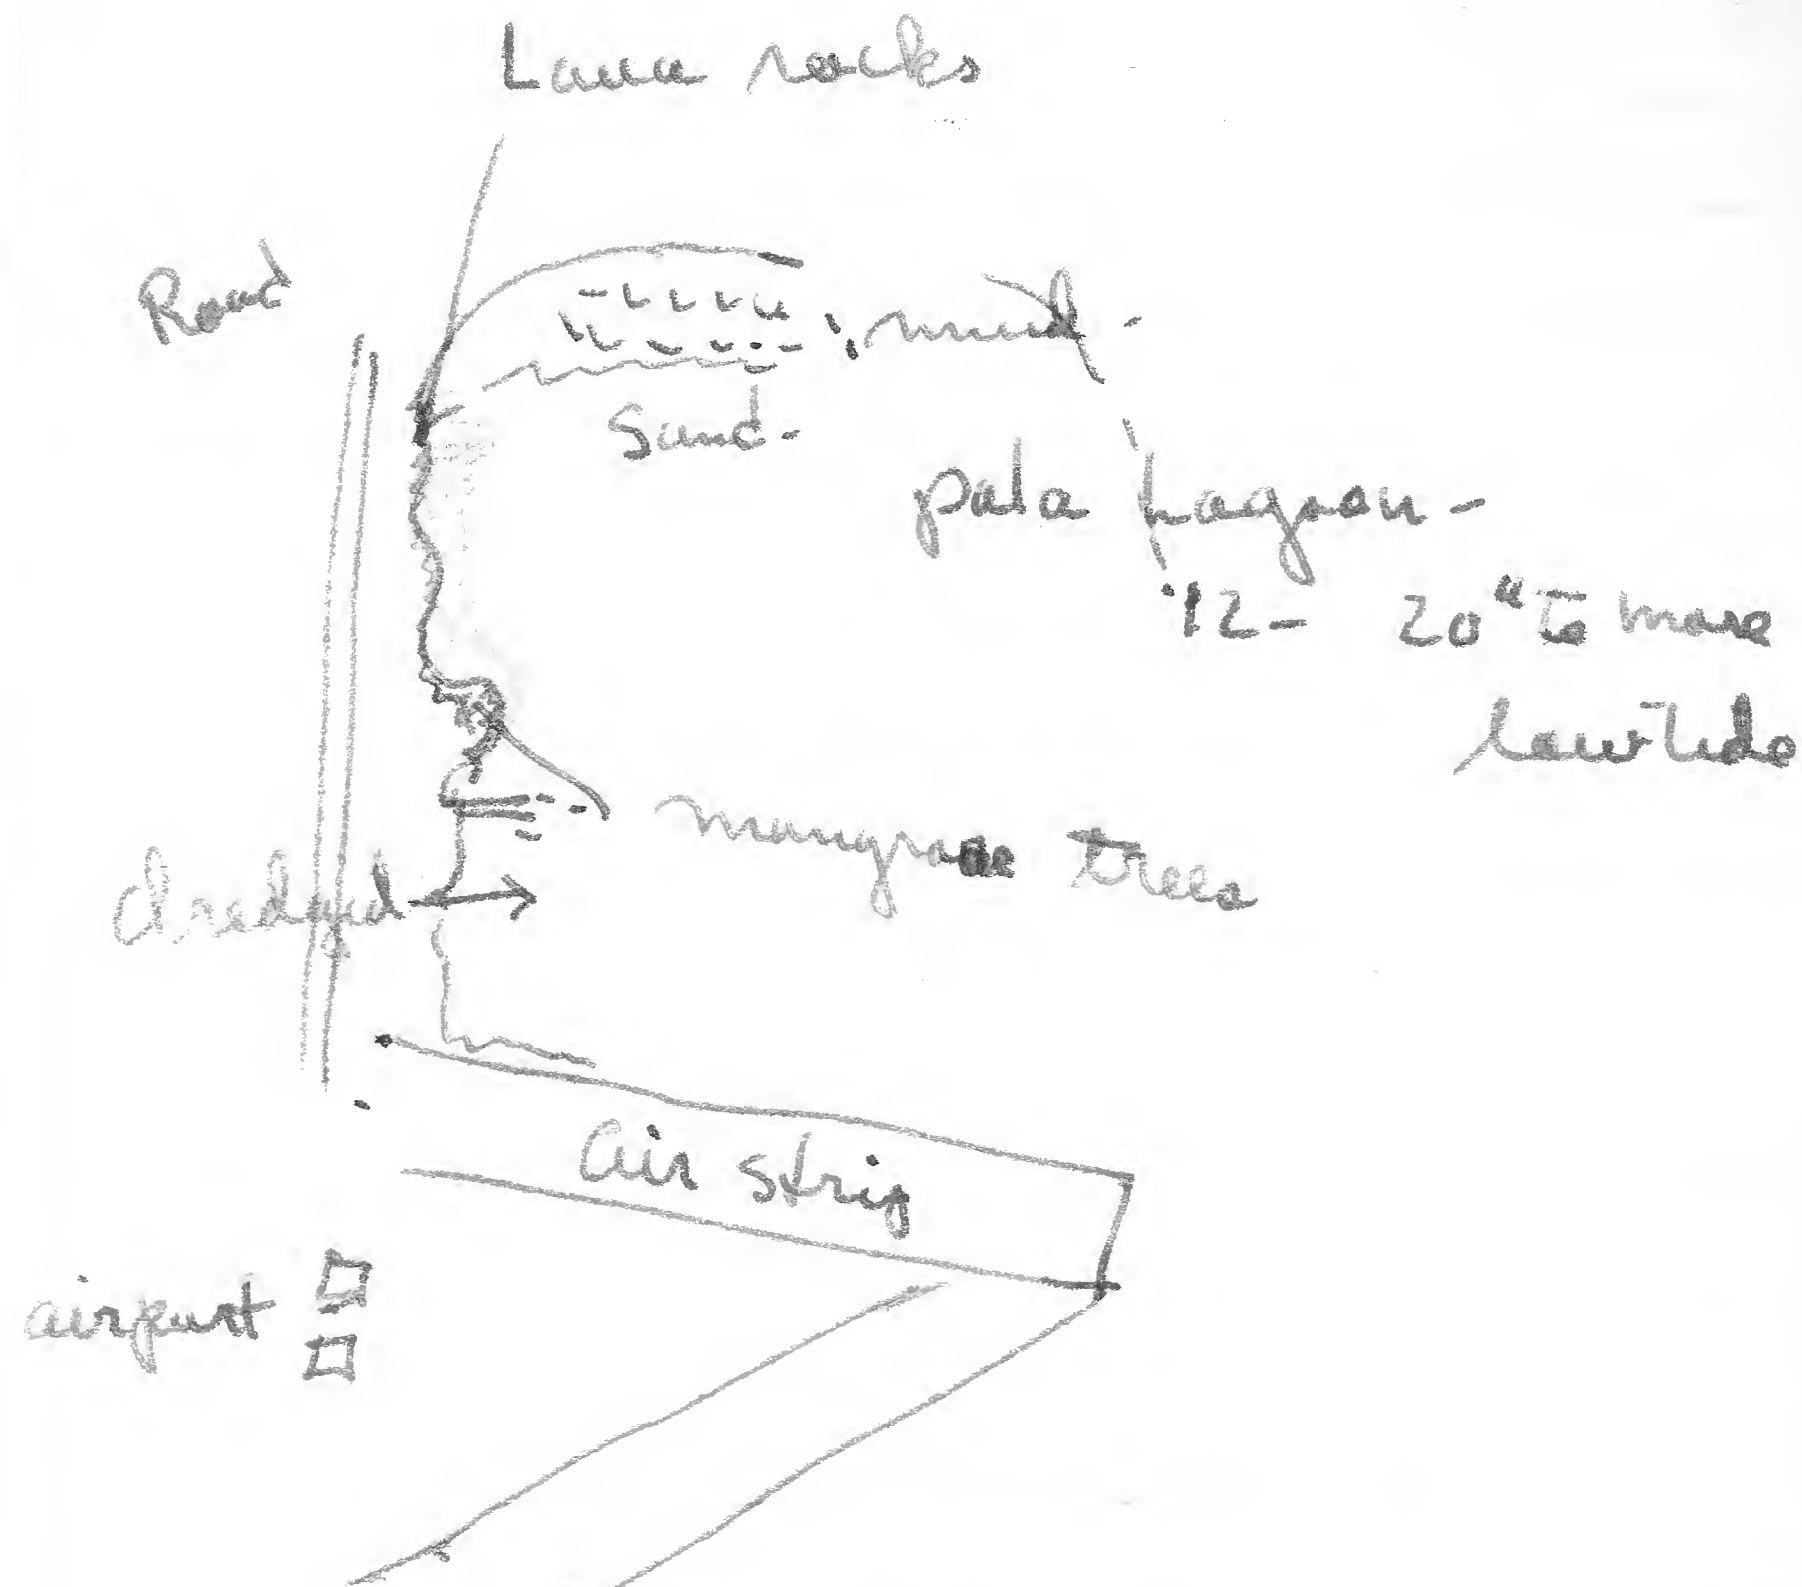 Lava rocks
Road
mud -
Sand -
pala Lagoon -
12 - 20" to more
low tide
mangrove trees
dredged
air strip
airport